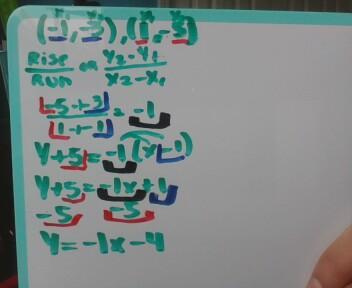 (-1,-3),(1,-5)
Rise or y₂-y₁
Run x₂-x₁
-5+3 = -1
1+1
y+5=-1(x-1)
y+5=-1x+1
-5 -5
y=-1x-4